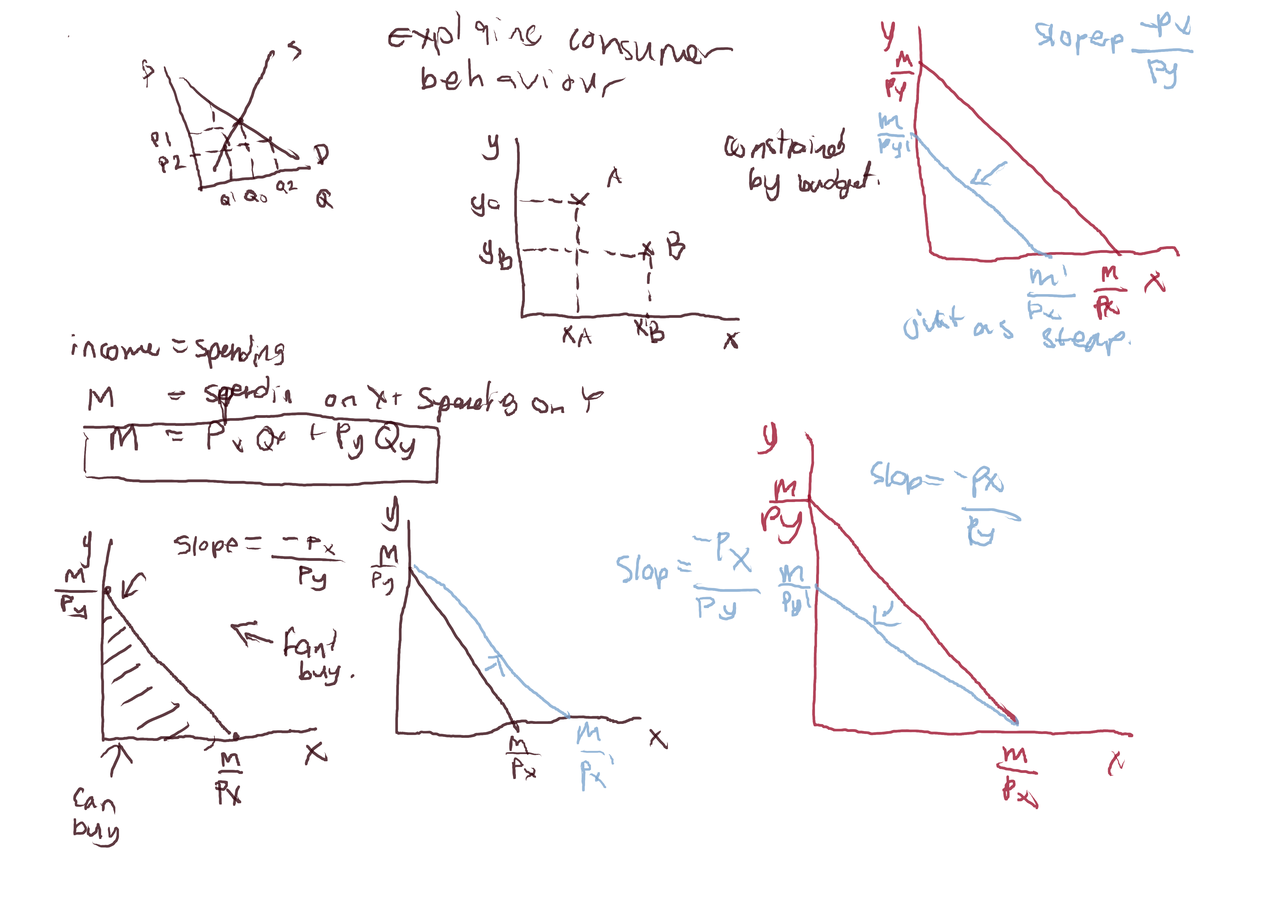 explaine consumer
behaviour
S
P
P1
P2
D
Q1 Q0 Q2 Q
y
A
y0
yB
B
xA xB x
constrained
by budget.
y
M/Py
Slope -Px/Py
m/Py'
m'/Px
M/Px
x
as steap.
income = spending
M = spendin on X + Spending on Y
M = Px Qx + Py Qy
y
M/Py
Slope = -Px/Py
buy.
M/Px
x
Can
buy
y
M/Py
M/Px
M/Px'
x
y
M/Py
Slop = -Px/Py
Slop = -Px/Py
m/Py'
m/Px
x